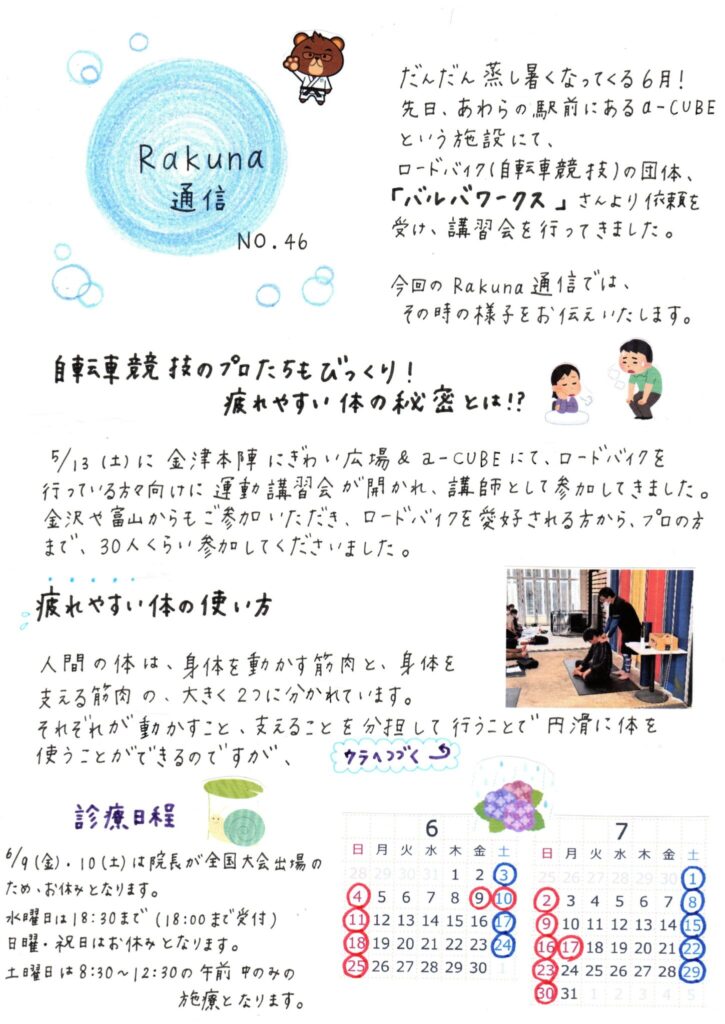 Rakuna
通信
NO.46
だんだん蒸し暑くなってくる6月!
先日、あわらの駅前にあるa-CUBE
という施設にて、
ロードバイク(自転車競技)の団体、
「バルバワークス」さんより依頼を
受け、講習会を行ってきました。
今回のRakuna通信では、
その時の様子をお伝えいたします。
自転車競技のプロたちもびっくり!
疲れやすい体の秘密とは!?
5/13(土)に金津本陣にぎわい広場&a-CUBEにて、ロードバイクを
行っている方々向けに運動講習会が開かれ、講師として参加してきました。
金沢や富山からもご参加いただき、ロードバイクを愛好される方から、プロの方
まで、30人くらい参加してくださいました。
疲れやすい体の使い方
人間の体は、身体を動かす筋肉と、身体を
支える筋肉の、大きく2つに分かれています。
それぞれが動かすこと、支えることを分担して行うことで円滑に体を
使うことができるのですが、
ウラへつづく
診療日程
6/9(金)・10(土)は院長が全国大会出場の
ため、お休みとなります。
水曜日は18:30まで(18:00まで受付)
日曜・祝日はお休みとなります。
土曜日は8:30〜12:30の午前中のみの
施療となります。
6
日 月 火 水 木 金 土
28 29 30 31 1 2 3
4 5 6 7 8 9 10
11 12 13 14 15 16 17
18 19 20 21 22 23 24
25 26 27 28 29 30 1
7
日 月 火 水 木 金 土
25 26 27 28 29 30 1
2 3 4 5 6 7 8
9 10 11 12 13 14 15
16 17 18 19 20 21 22
23 24 25 26 27 28 29
30 31 1 2 3 4 5